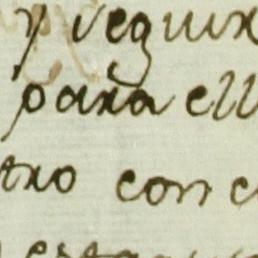 y seguir
para ell
tro con c